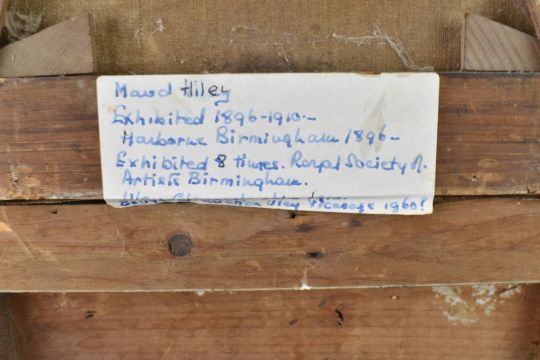 Maud Hiley
Exhibited 1896-1910.-
Harborne Birmingham 1896-
Exhibited 8 times. Royal Society of.
Artists Birmingham.
Vicarage 1960?